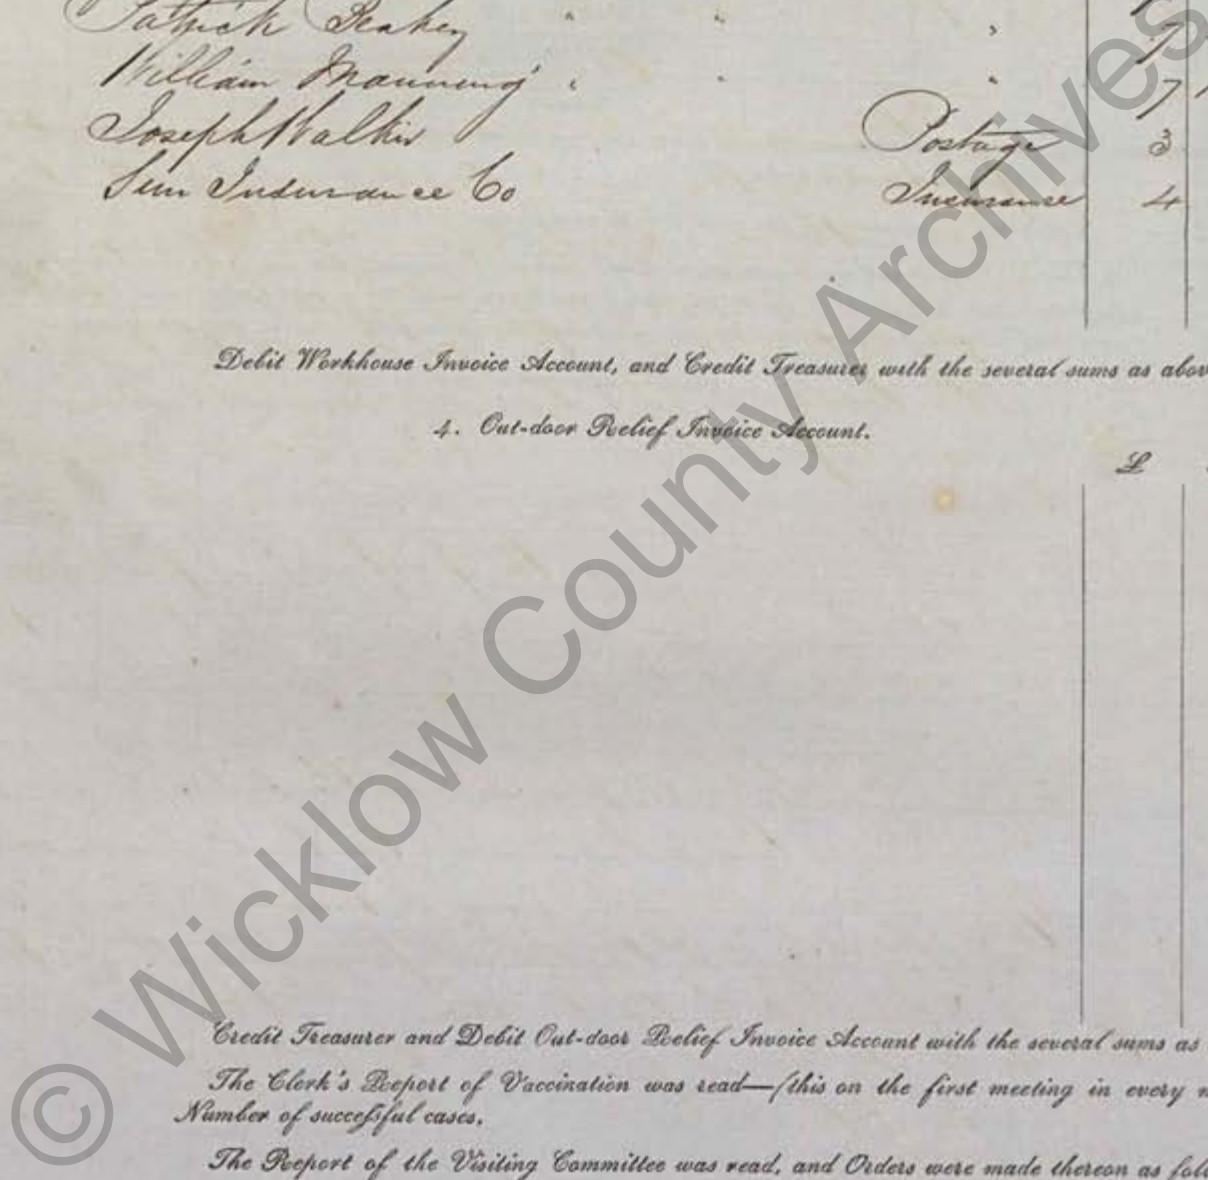 Patrick
William Manning " " "  7
Joseph Walker Postage 3
Sun Insurance Co Insurance 4
Debit Workhouse Invoice Account, and Credit Treasurer with the several sums as abov
4. Out-door Relief Invoice Account.
£
Credit Treasurer and Debit Out-door Relief Invoice Account with the several sums as
The Clerk's Report of Vaccination was read—(this on the first meeting in every m
Number of successful cases.
The Report of the Visiting Committee was read, and Orders were made thereon as foll
© Wicklow County Archives